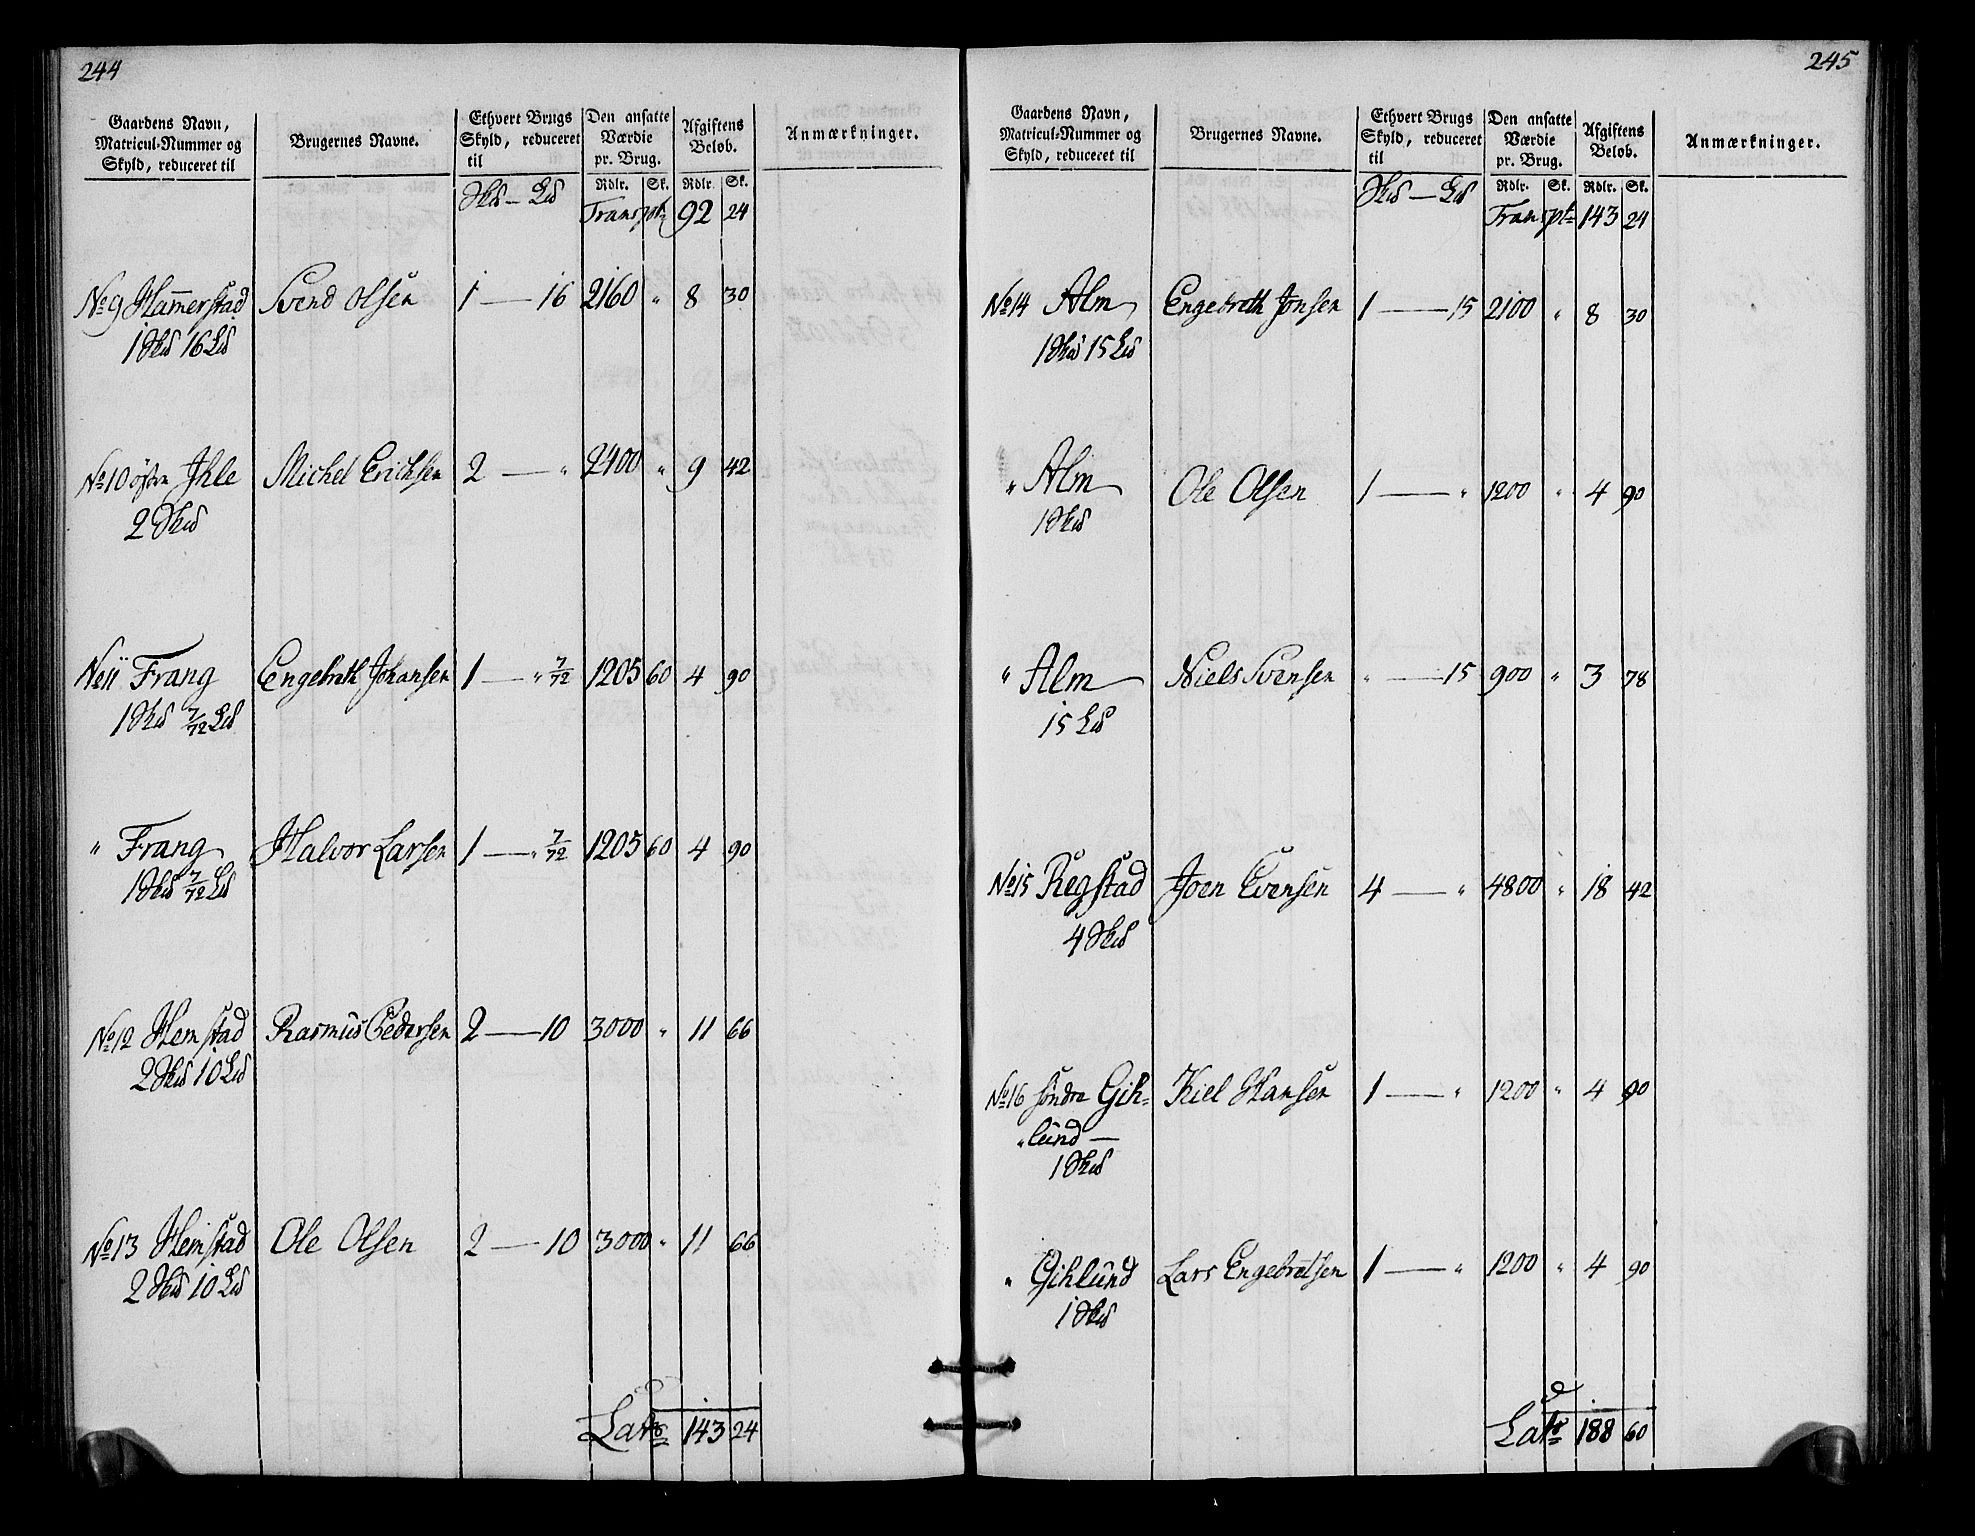 244
Gaardens Navn, Matricul-Nummer og Skyld, reduceret til | Brugernes Navne. | Ethvert Brugs Skyld, reduceret til | Den ansatte Værdie pr. Brug. | Afgiftens Beløb. | Anmærkninger.
Rdlr. Sk. Rdlr. Sk.
Skd — Ld Transpt= 92 24
No 9 Hamerstad Svend Olsen 1 — 16 2160 „ 8 30
1 Skd 16 Ld
No 10 östre Ihle Michel Erichsen 2 — „ 2400 „ 9 42
2 Skd
No 11 Frang Engebreth Johansen 1 — „ 7/72 1205 60 4 90
1 Skd 7/72 Ld
„ Frang Halvor Larsen 1 — „ 7/72 1205 60 4 90
1 Skd 7/72 Ld
No 12 Hemstad Rasmus Pedersen 2 — 10 3000 „ 11 66
2 Skd 10 Ld
No 13 Hemstad Ole Olsen 2 — 10 3000 „ 11 66
2 Skd 10 Ld
Lato 143 24
245
Gaardens Navn, Matricul-Nummer og Skyld, reduceret til | Brugernes Navne. | Ethvert Brugs Skyld, reduceret til | Den ansatte Værdie pr. Brug. | Afgiftens Beløb. | Anmærkninger.
Rdlr. Sk. Rdlr. Sk.
Skd — Ld Transpt= 143 24
No 14 Alm Engebreth Jonsen 1 — 15 2100 „ 8 30
1 Skd 15 Ld
„ Alm Ole Olsen 1 — „ 1200 „ 4 90
1 Skd
„ Alm Niels Svensen „ — 15 900 „ 3 78
15 Ld
No 15 Regstad Joen Evensen 4 — „ 4800 „ 18 42
4 Skd
No 16 söndre Gih= Kiel Hansen 1 — „ 1200 „ 4 90
„lund —
1 Skd
„ Gihlund Lars Engebretsen 1 — „ 1200 „ 4 90
1 Skd
Lato 188 60